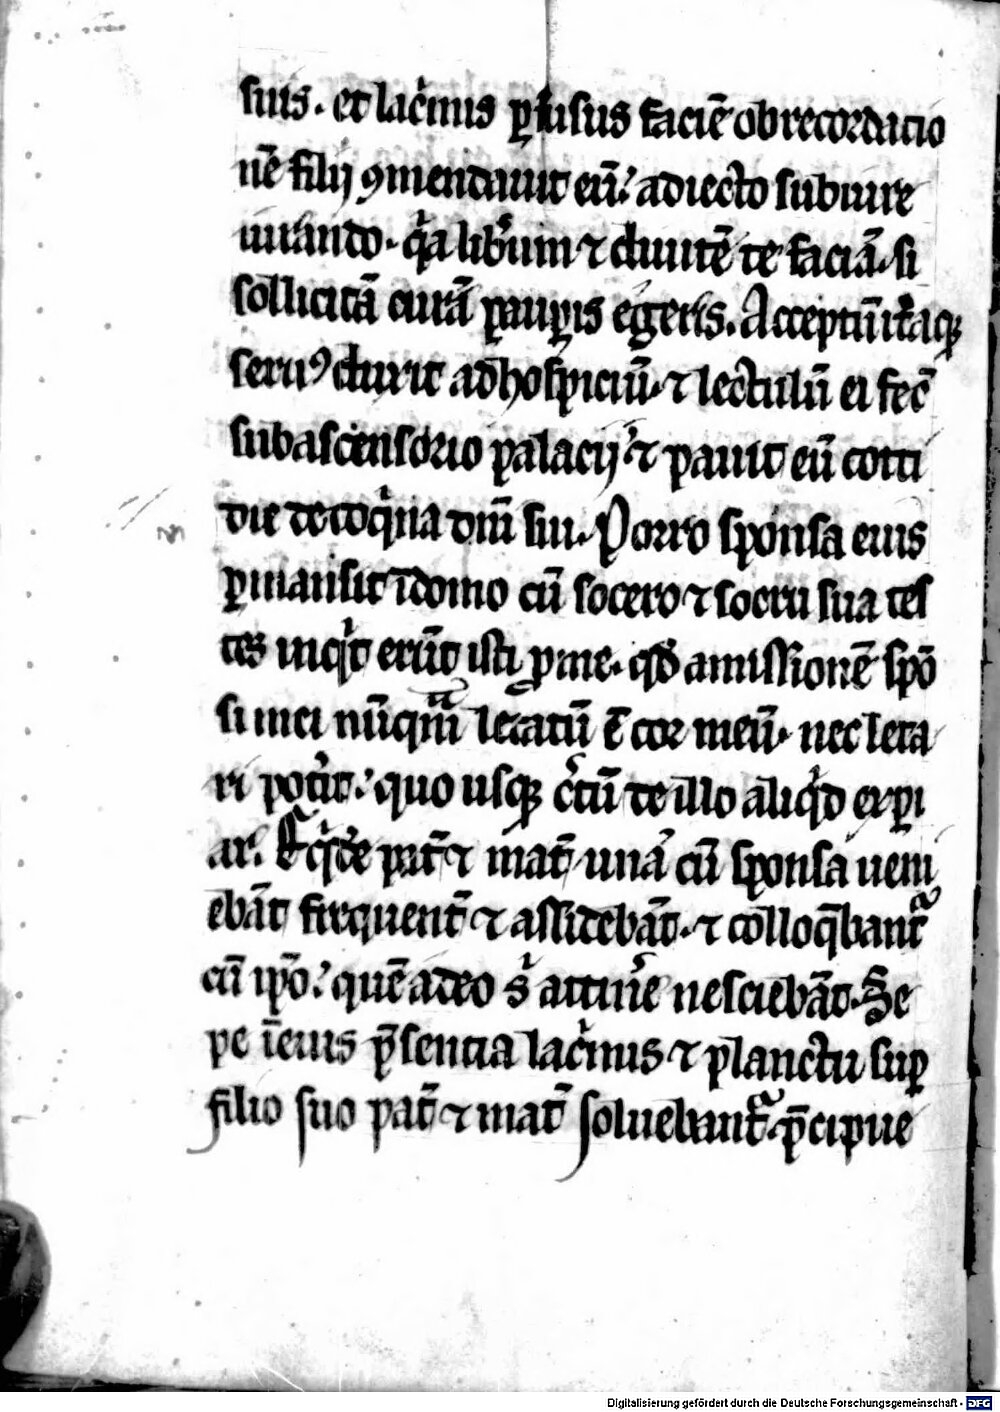 suis. et lac̓mis ꝑfusus faciē ob recordacio
nē filij ꝯmendauit eū.᾽ adiecto subiure
iurando. q̓a lib̓um ⁊ diuitē te faciā. si
sollicitā curā pauꝑis egeris. Acceptū itaqꝫ
seruꝰ duxit ad hospiciū. ⁊ lectulū ei fec̄
sub ascensorio palacij.᾽ ⁊ pauit eū cotti
die de coq̓na dn̄i sui. Porro sponsa eius
ꝑmansit ī domo cū socero ⁊ socru sua tes
tes inq̓t erūt isti ꝓ me. qd̓ amissionē spō
si mei nūqm̄ letatū ē cor meū. nec leta
ri pot̓it.᾽ quo usqꝫ c̓tū de illo aliq̓d exꝑi
ar. Et q̓dē pat̄ ⁊ mat̄ una cū sponsa ueni
ebāt frequent̄ ⁊ assidebāt. ⁊ colloq̄bant᷑
cū ip̄o.᾽ quē adeo s̓ attin̓e nesciebāt. Se
pe ī eius p̄sencia lac̓mis ⁊ planctu suꝑ
filio suo pat̄ ⁊ mat̄ soluebant᷑. p̄cipue
Digitalisierung gefördert durch die Deutsche Forschungsgemeinschaft - DFG